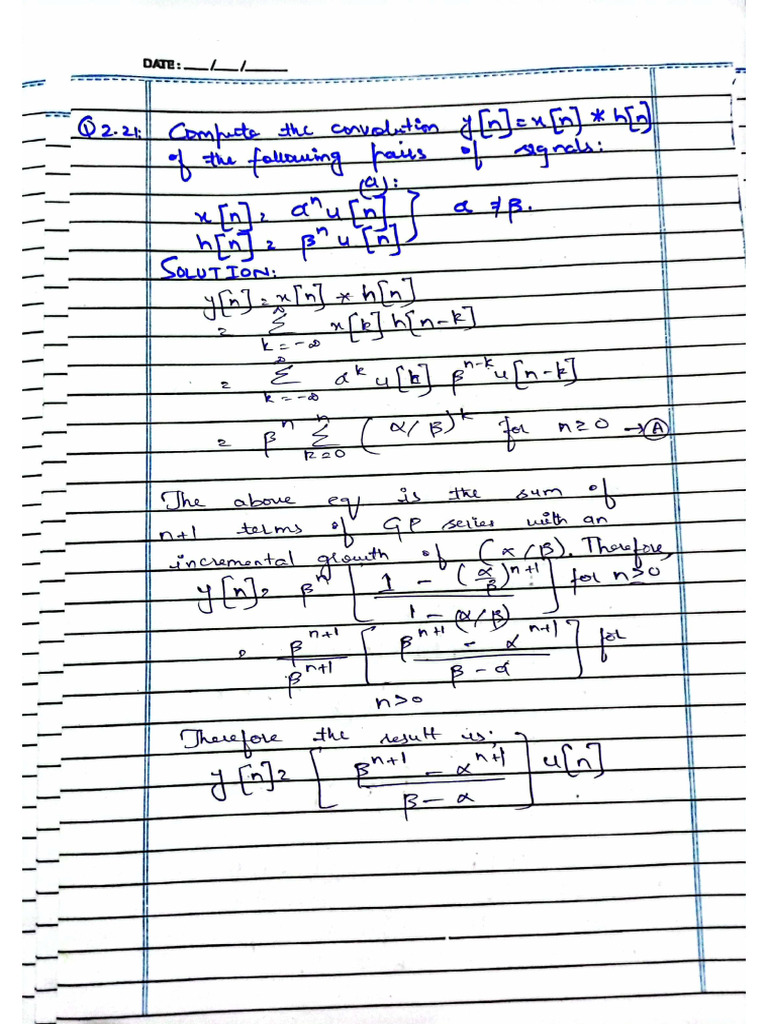 DATE: __/__/____
Q2.21: Compute the convolution y[n] = x[n] * h[n]
of the following pairs of signals:
(a):
x[n] = αⁿu[n] } α ≠ β.
h[n] = βⁿu[n]
SOLUTION:
y[n] = x[n] * h[n]
= ∞Σk=-∞ x[k] h[n-k]
= ∞Σk=-∞ αᵏ u[k] βⁿ⁻ᵏ u[n-k]
= βⁿ nΣk=0 (α/β)ᵏ for n≥0 → Ⓐ
The above eq is the sum of
n+1 terms of GP series with an
incremental growth of (α/β). Therefore,
y[n] = βⁿ [ 1 - (α/β)ⁿ⁺¹ / 1 - (α/β) ] for n≥0
= βⁿ⁺¹/βⁿ⁺¹ [ βⁿ⁺¹ - αⁿ⁺¹ / β - α ] for
n>0
Therefore the result is;
y[n] = [ βⁿ⁺¹ - αⁿ⁺¹ / β - α ] u[n]